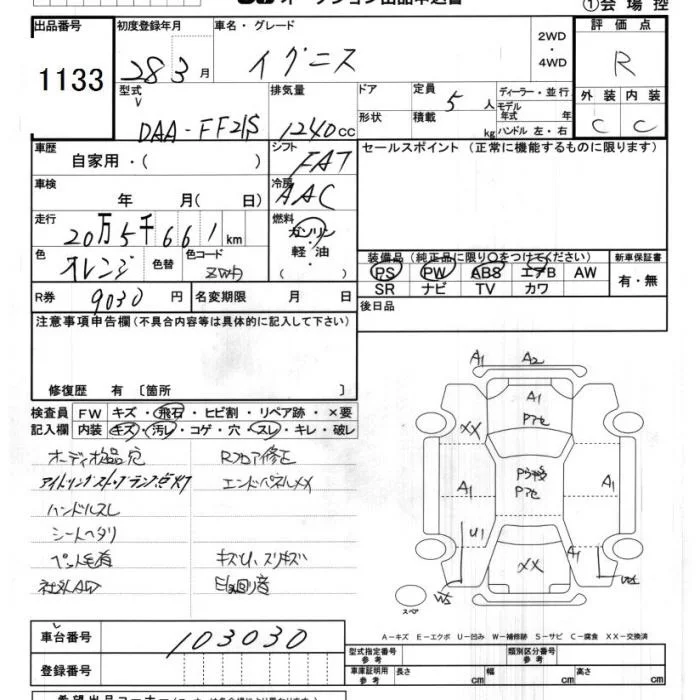 ①会場控
出品番号
1133
初度登録年月
28 3 月
車名・グレード
イグニス
2WD
・
4WD
評価点
R
外装 内装
C C
型式
DAA-FF21S
排気量
1240 cc
ドア
形状
定員 5 人
積載 kg
ディーラー・並行
モデル年式 年
ハンドル 左・右
車歴
自家用・( )
シフト
FAT
セールスポイント(正常に機能するものに限ります)
車検
年 月(日)
冷房
AAC
走行
20万5千661 km
燃料
ガソリン
・
軽油
( ・ )
色
オレンジ
色替
色コード
ZWA
R券 9030 円
名変期限 月 日
装備品(純正品に限り○をつけてください)
PS PW ABS エアB AW
SR ナビ TV カワ
新車保証書
有・無
後日品
注意事項申告欄(不具合内容等は具体的に記入して下さい)
修復歴 有 [箇所 ]
検査員 FW キズ・飛石・ヒビ割・リペア跡・×要
記入欄 内装 キズ・汚レ・コゲ・穴・スレ・キレ・破レ
オーディオ欠品 穴
Rフロア修正
エンドパネルXX
ハンドルスレ
シートヘタリ
ペット毛有
キズU、スリキズ
社外AW
A1 A2
A1
Pアセ
XX
A1
Pアセ
A1
U1
XX
A1
スペア
A-キズ E-エクボ U-凹み W-補修跡 S-サビ C-腐食 XX-交換済
車台番号 103030
登録番号
型式指定番号
参考
類別区分番号
参考
車庫証明用
参考
長さ cm 幅 cm 高さ cm